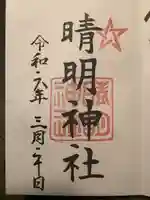 晴明神社
令和六年 三月十日